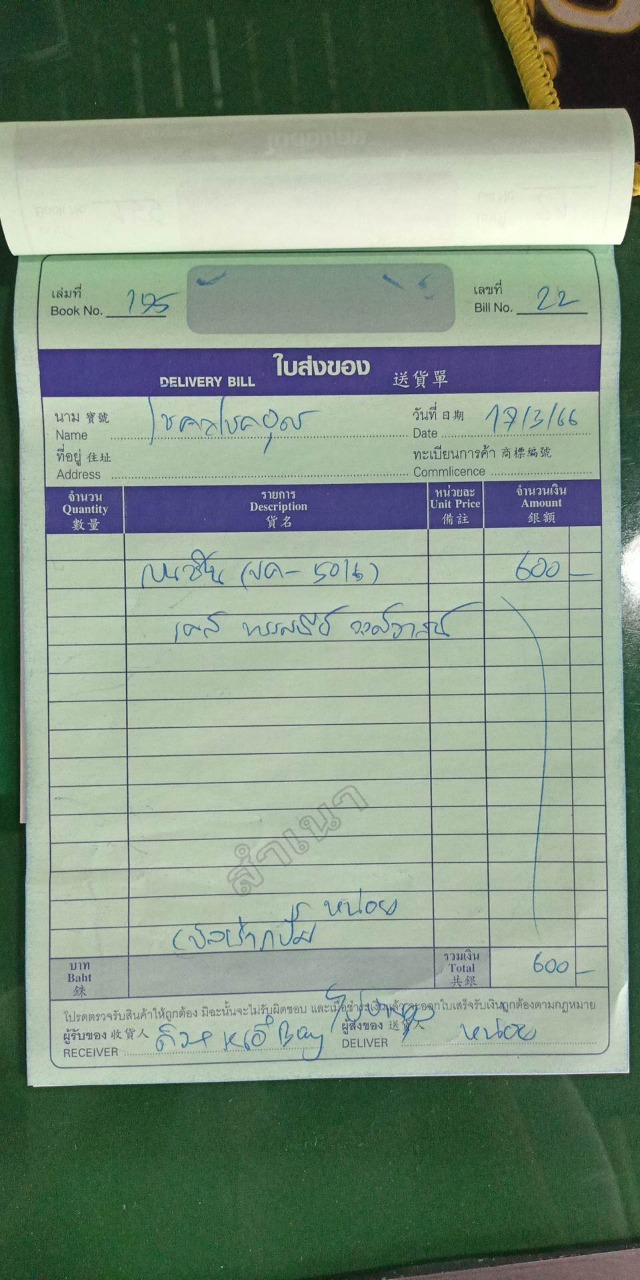 เล่มที่ เลขที่
Book No. 195 Bill No. 22
ใบส่งของ
DELIVERY BILL 送貨單
นาม 寶號 วันที่ 日期 17/3/66
Name Date
ที่อยู่ 住址 ทะเบียนการค้า 商標編號
Address Commlicence
จำนวน รายการ หน่วยละ จำนวนเงิน
Quantity Description Unit Price Amount
數量 貨名 備註 銀額
600 –
สำเนา
หน่อย
บาท รวมเงิน
Baht Total 600 –
銖 共銀
โปรดตรวจรับสินค้าให้ถูกต้อง มิฉะนั้นจะไม่รับผิดชอบ และเมื่อชำระเงินแล้ว จะออกใบเสร็จรับเงินถูกต้องตามกฎหมาย
ผู้รับของ 收貨人 Bay ผู้ส่งของ 送貨人 หน่อย
RECEIVER DELIVER